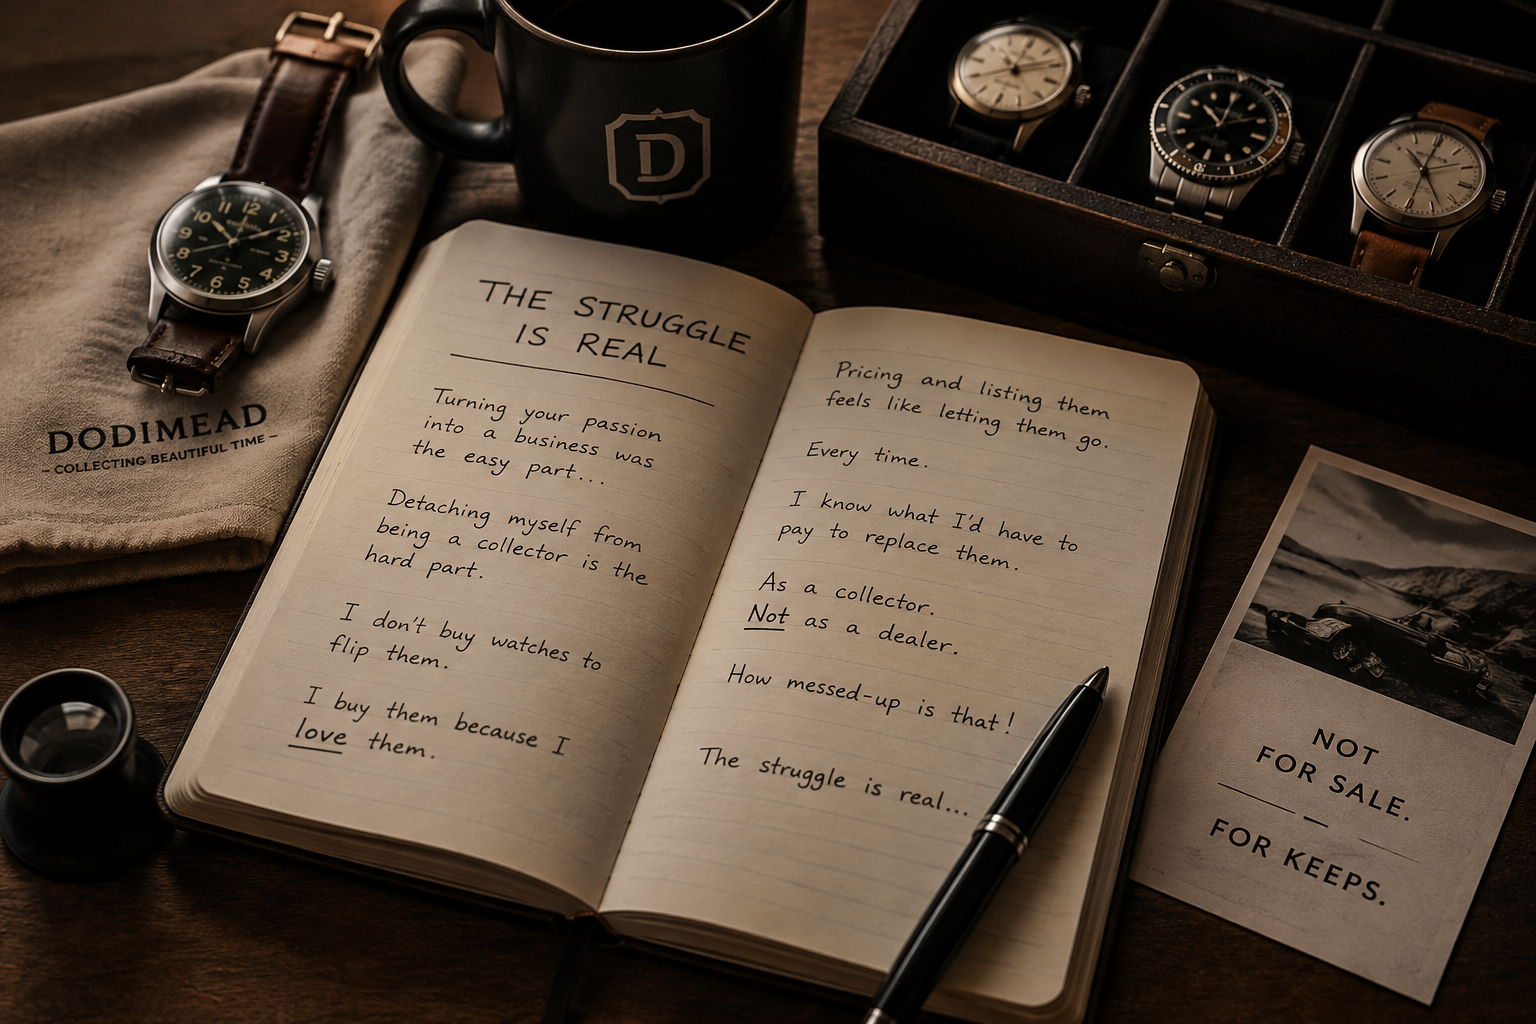 D
DODIMEAD
– COLLECTING BEAUTIFUL TIME –
12
1
2
3
4
5
6
7
8
9
10
11
THE STRUGGLE
IS REAL
Turning your passion
into a business was
the easy part...
Detaching myself from
being a collector is the
hard part.
I don't buy watches to
flip them.
I buy them because I
love them.
Pricing and listing them
feels like letting them go.
Every time.
I know what I'd have to
pay to replace them.
As a collector.
Not as a dealer.
How messed-up is that!
The struggle is real...
NOT
FOR SALE.
FOR KEEPS.